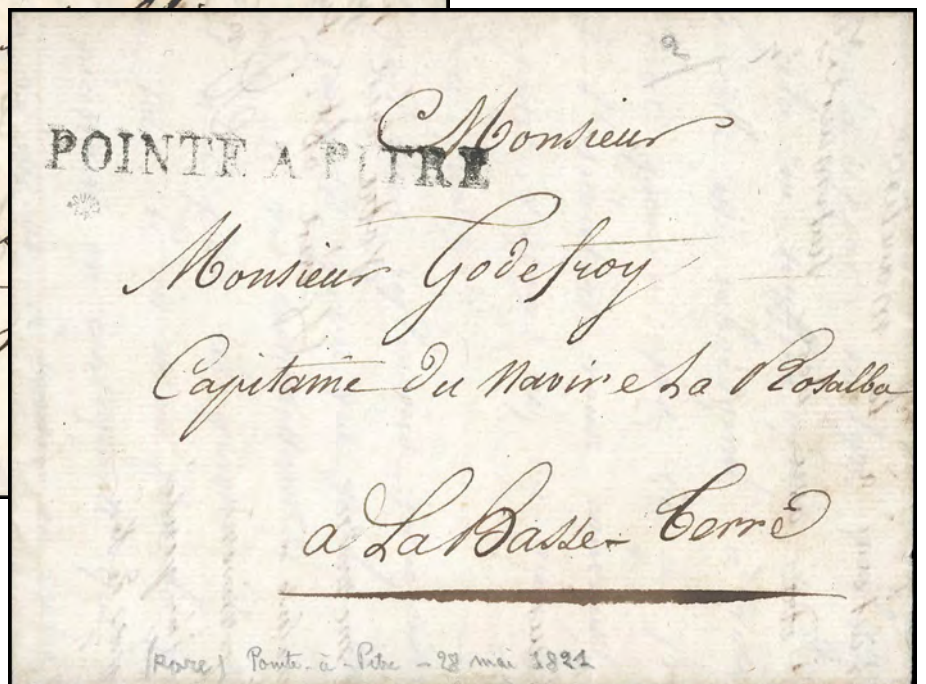 2
Monsieur
POINTE A PITRE
Monsieur Godefroy
Capitaine du Navire La Rosalba
a La Basse-Terre
(Rare) Pointe-à-Pitre - 28 mai 1821